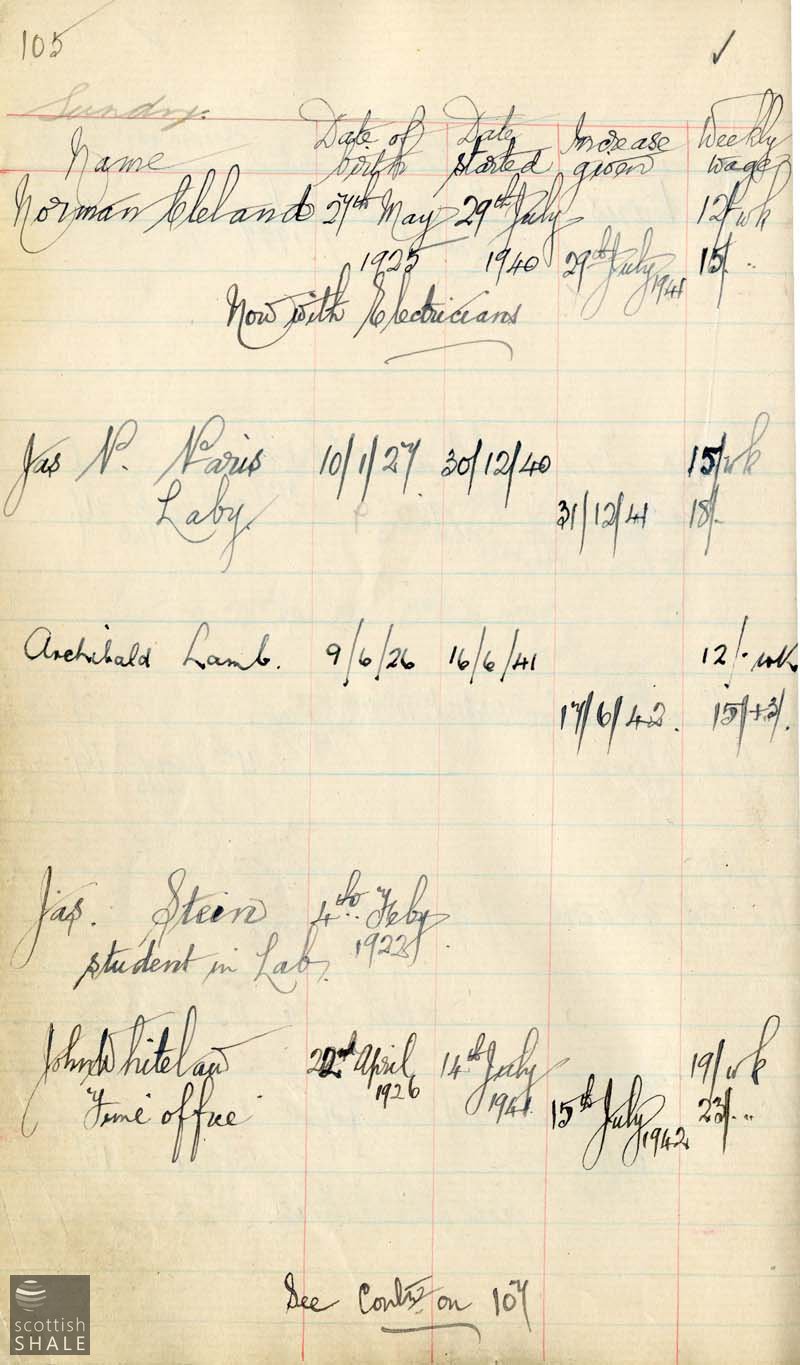 105 ✓
Sundry.
Name Date of birth Date started Increase given Weekly wage
Norman Cleland 27th May 29th July 12/ wk
1925 1940 29th July 1941 15/. "
Now with Electricians
Jas N. Naris 10/1/27 30/12/40 15/ wk
Laby. 31/12/41 18/.
Archibald Lamb. 9/6/26 16/6/41 12/- wk
17/6/42. 15/+3/.
Jas. Steen 4th Feby
student in Lab. 1922
John Whitelaw 22nd April 14th July 19/ wk
Time office 1926 1941. 15th July 1942 23/. "
See Contd on 107
scottish
SHALE